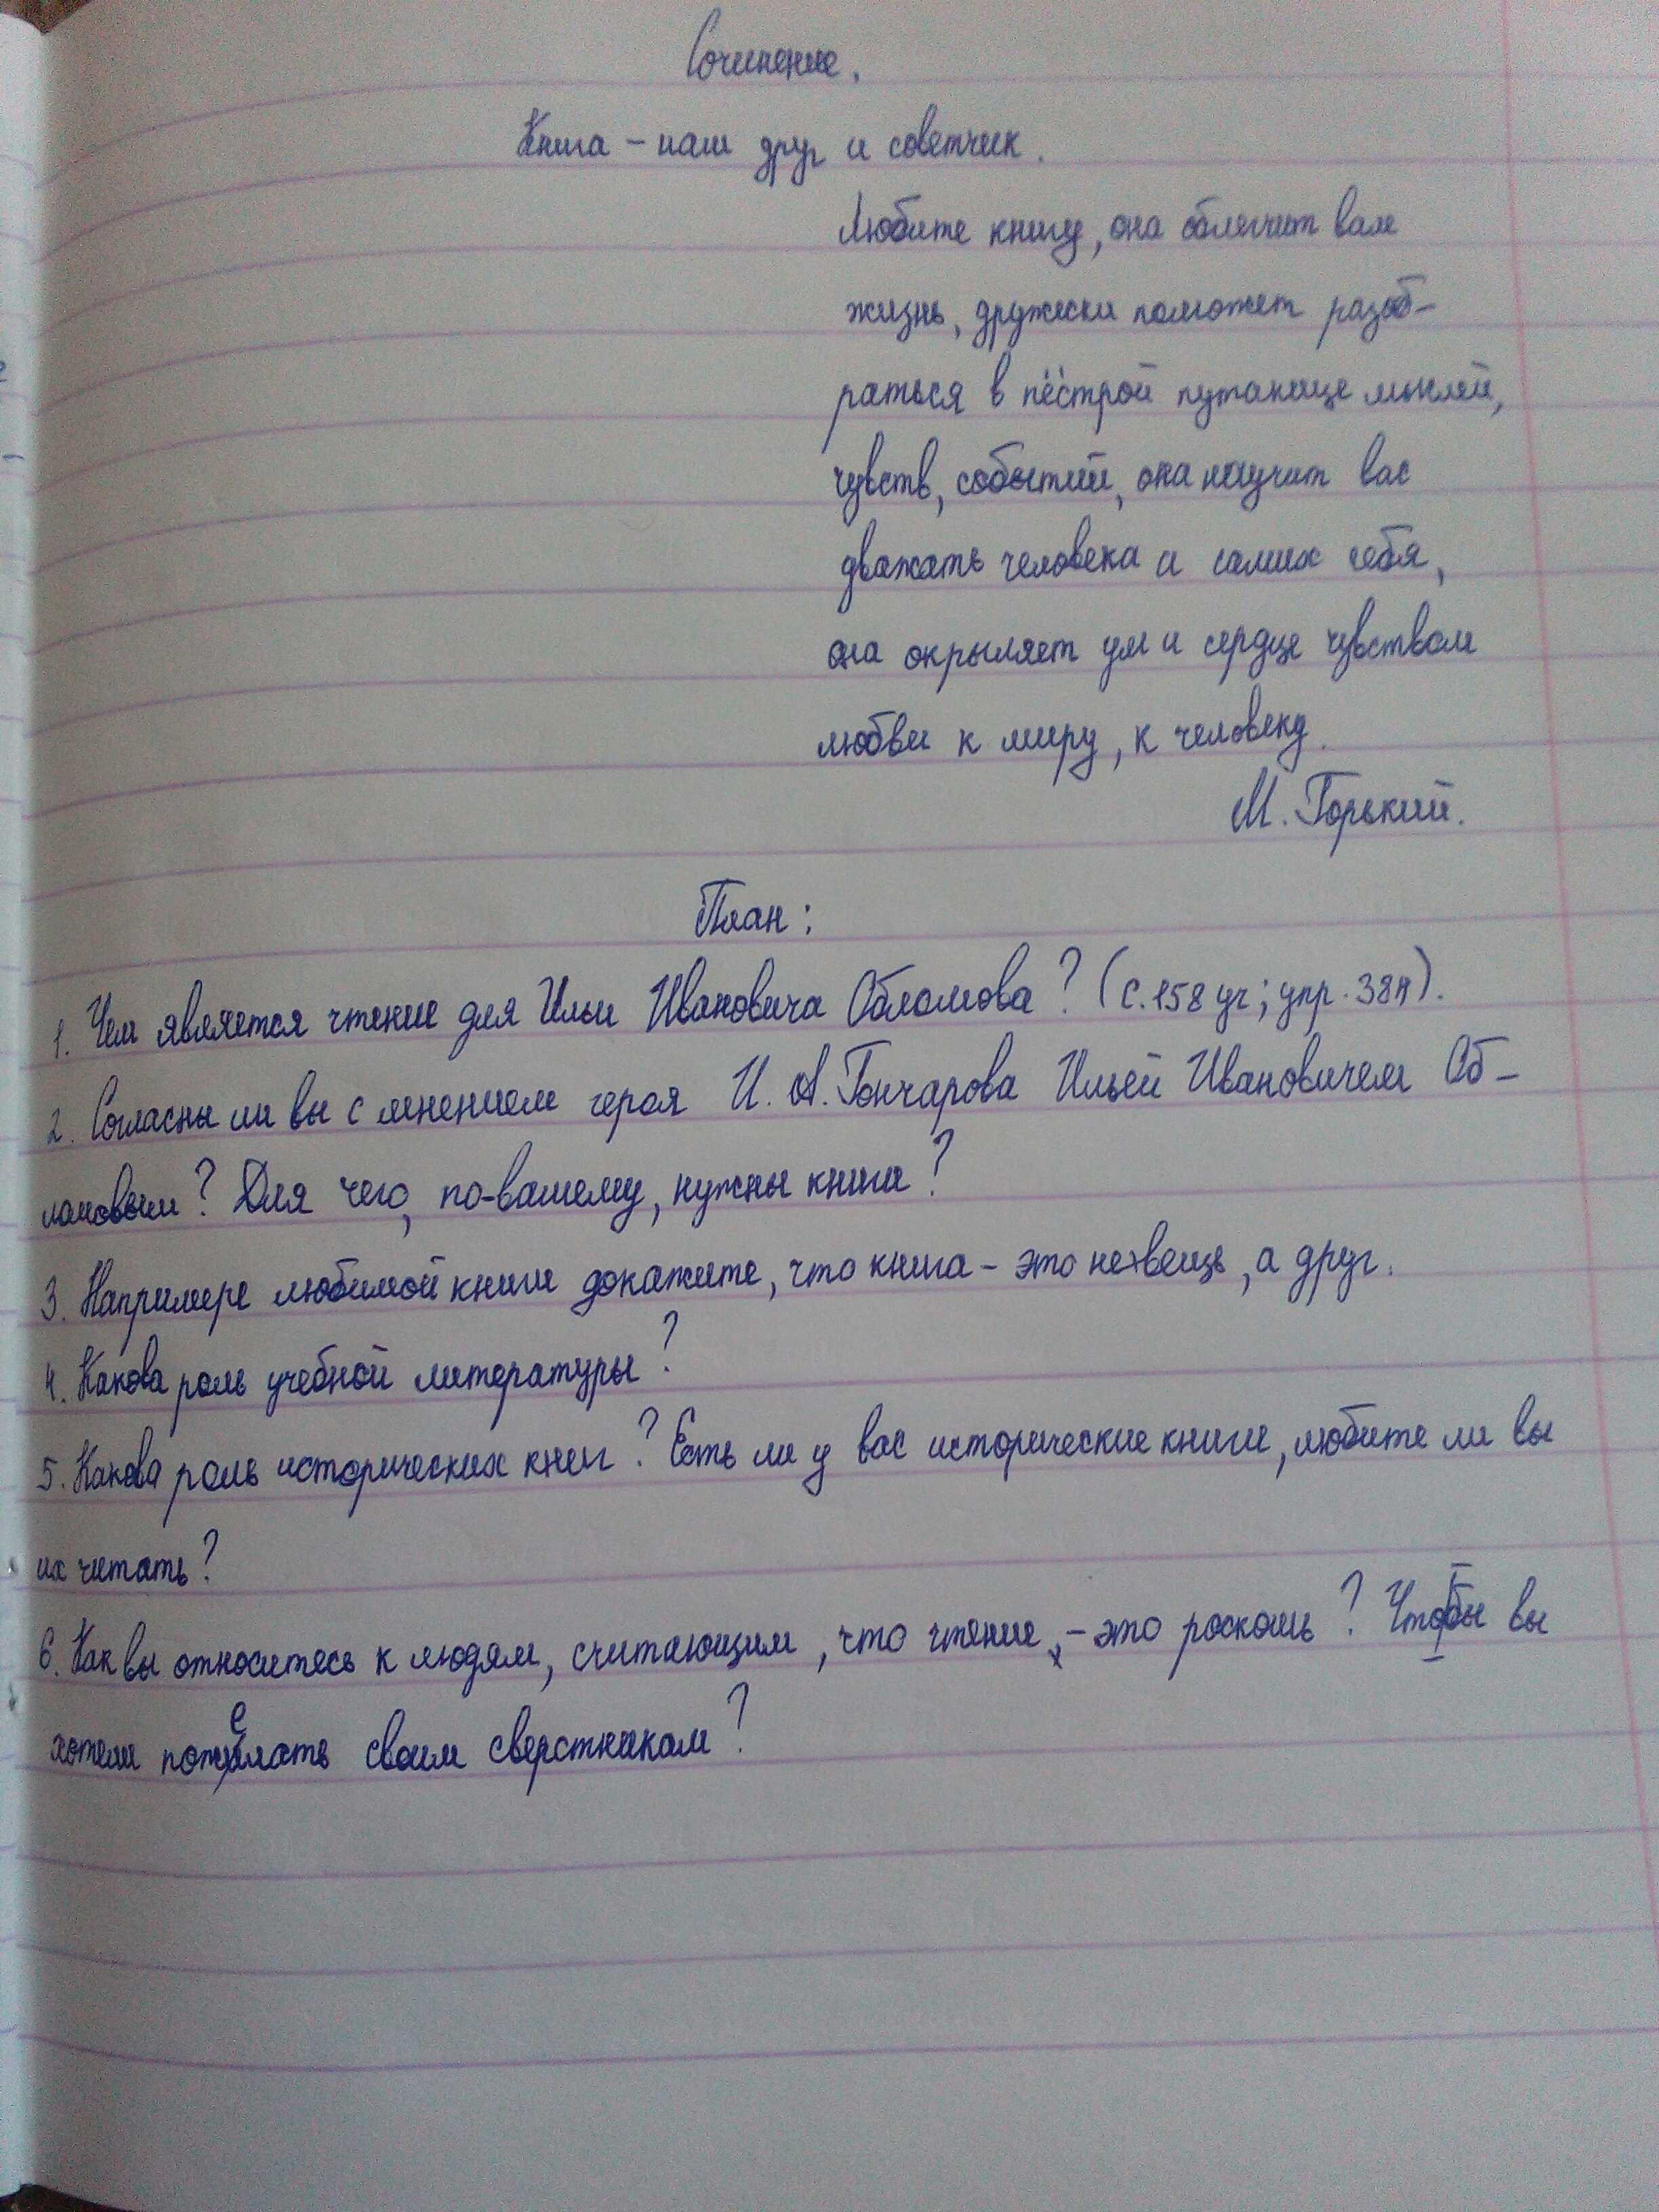 Сочинение.
Книга – наш друг и советчик.
Любите книгу, она облегчит вам
жизнь, дружески поможет разоб-
раться в пёстрой путанице мыслей,
чувств, событий, она научит вас
уважать человека и самих себя,
она окрыляет ум и сердце чувством
любви к миру, к человеку.
М. Горький.
План:
1. Чем является чтение для Ильи Ивановича Обломова? (с.158 уч; упр. 389).
2. Согласны ли вы с мнением героя И. А. Гончарова Ильёй Ивановичем Об-
ломовым? Для чего, по-вашему, нужны книги?
3. Напримере любимой книги докажите, что книга – это не вещь, а друг.
4. Какова роль учебной литературы?
5. Какова роль исторических книг? Есть ли у вас исторические книги, любите ли вы
их читать?
6. Как вы относитесь к людям, считающим, что чтение – это роскошь? Что бы вы
хотели пожелать своим сверстникам?